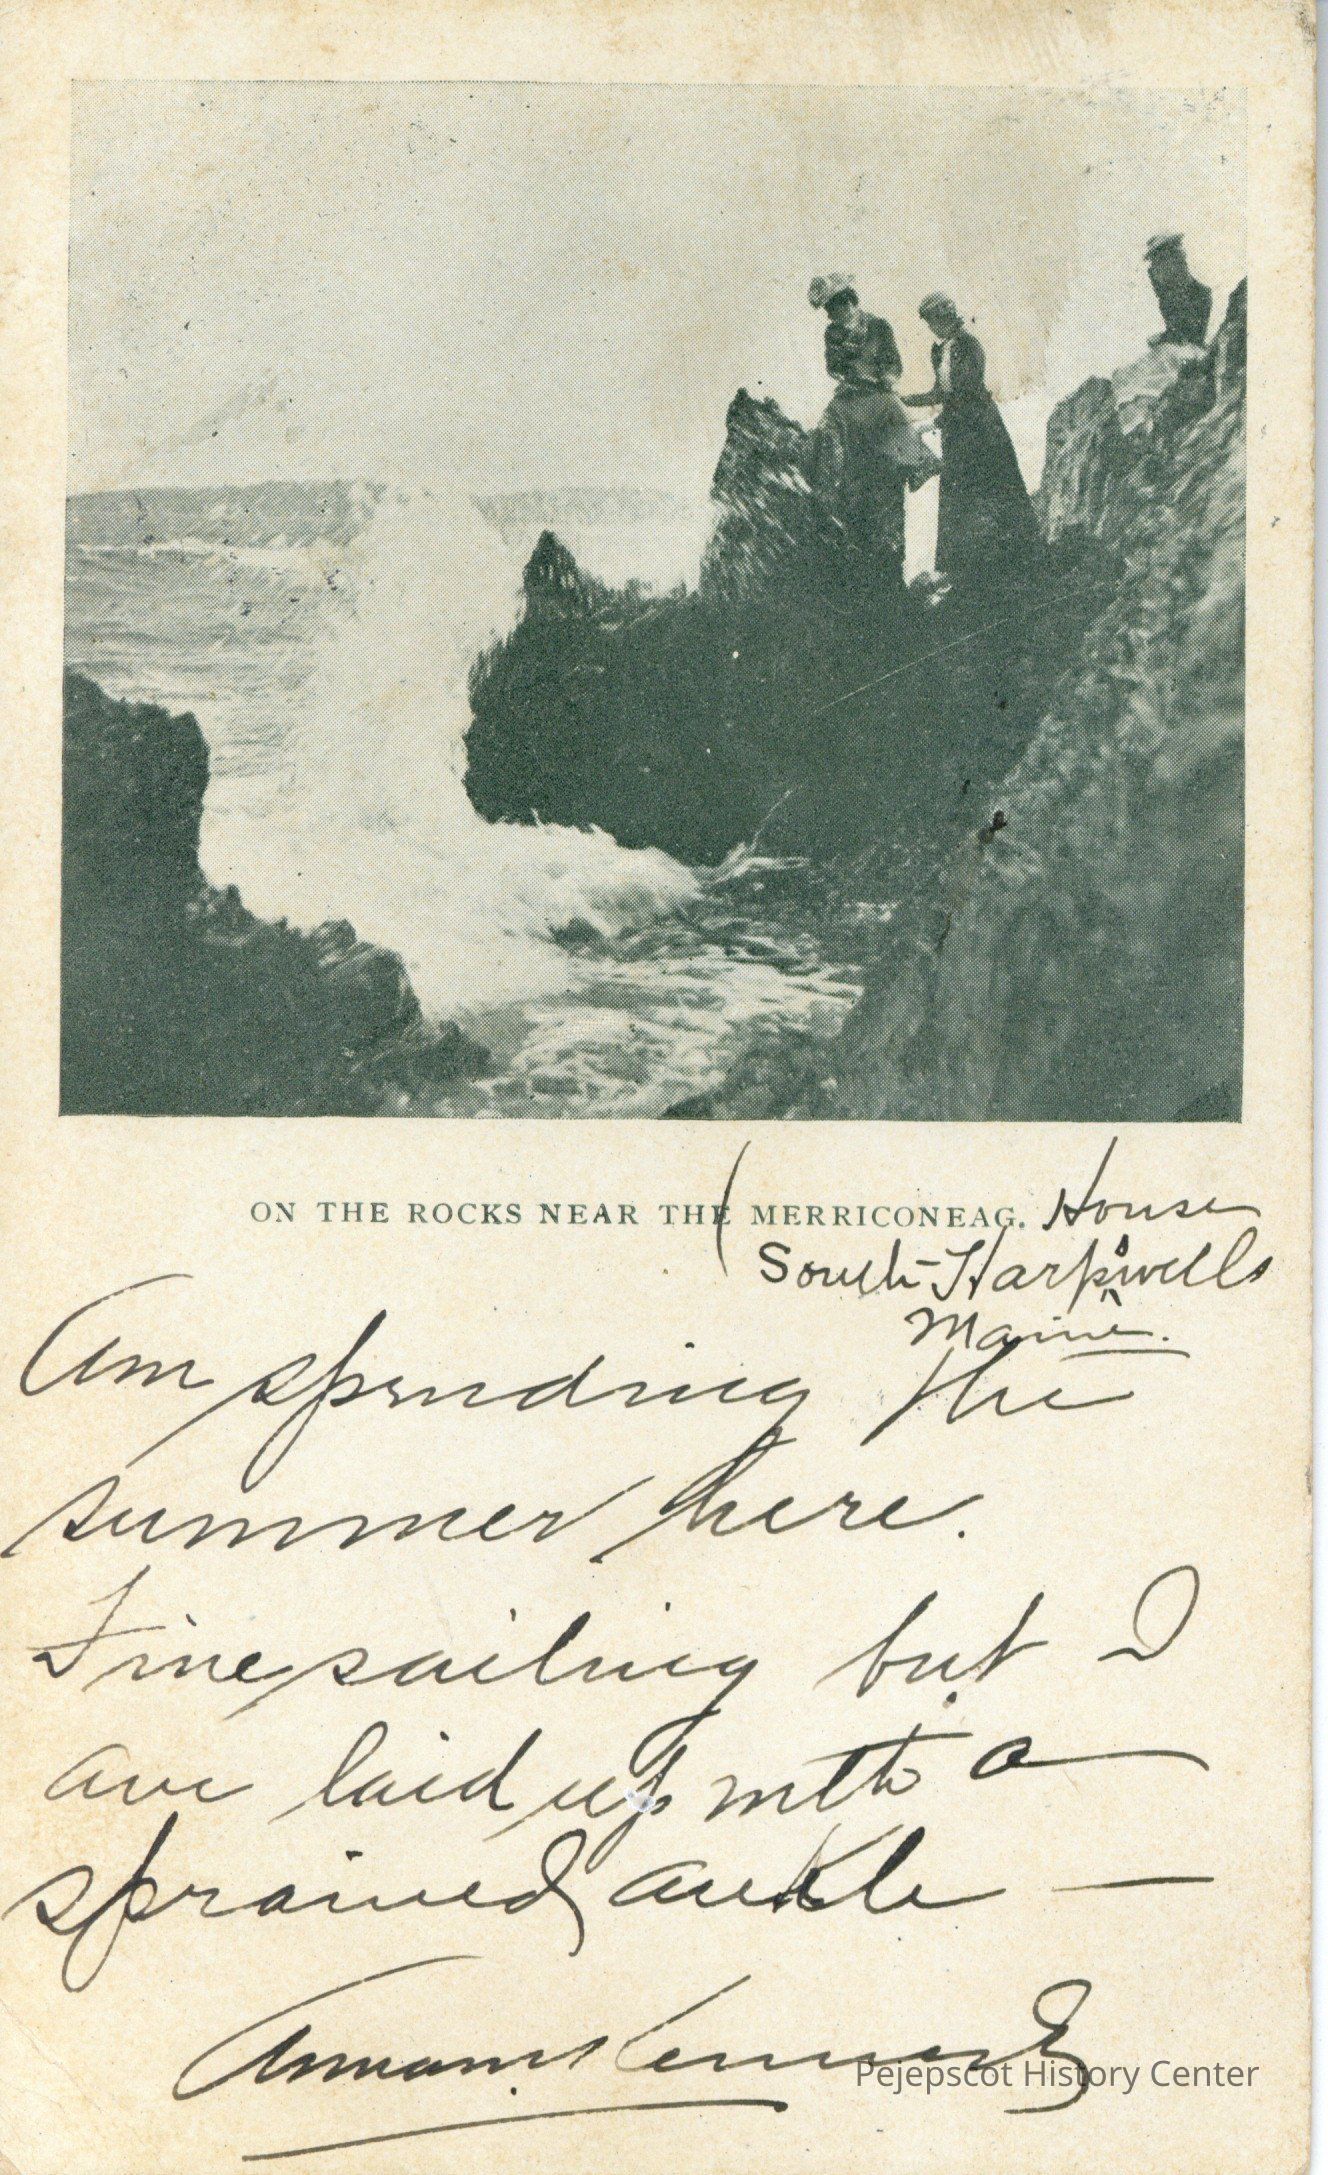 ON THE ROCKS NEAR THE ( MERRICONEAG. House
South Harpswells
Maine.
Am spending the
summer here.
Fine sailing but I
am laid up with a
sprained ankle —
Anna M. Kennedy
Pejepscot History Center